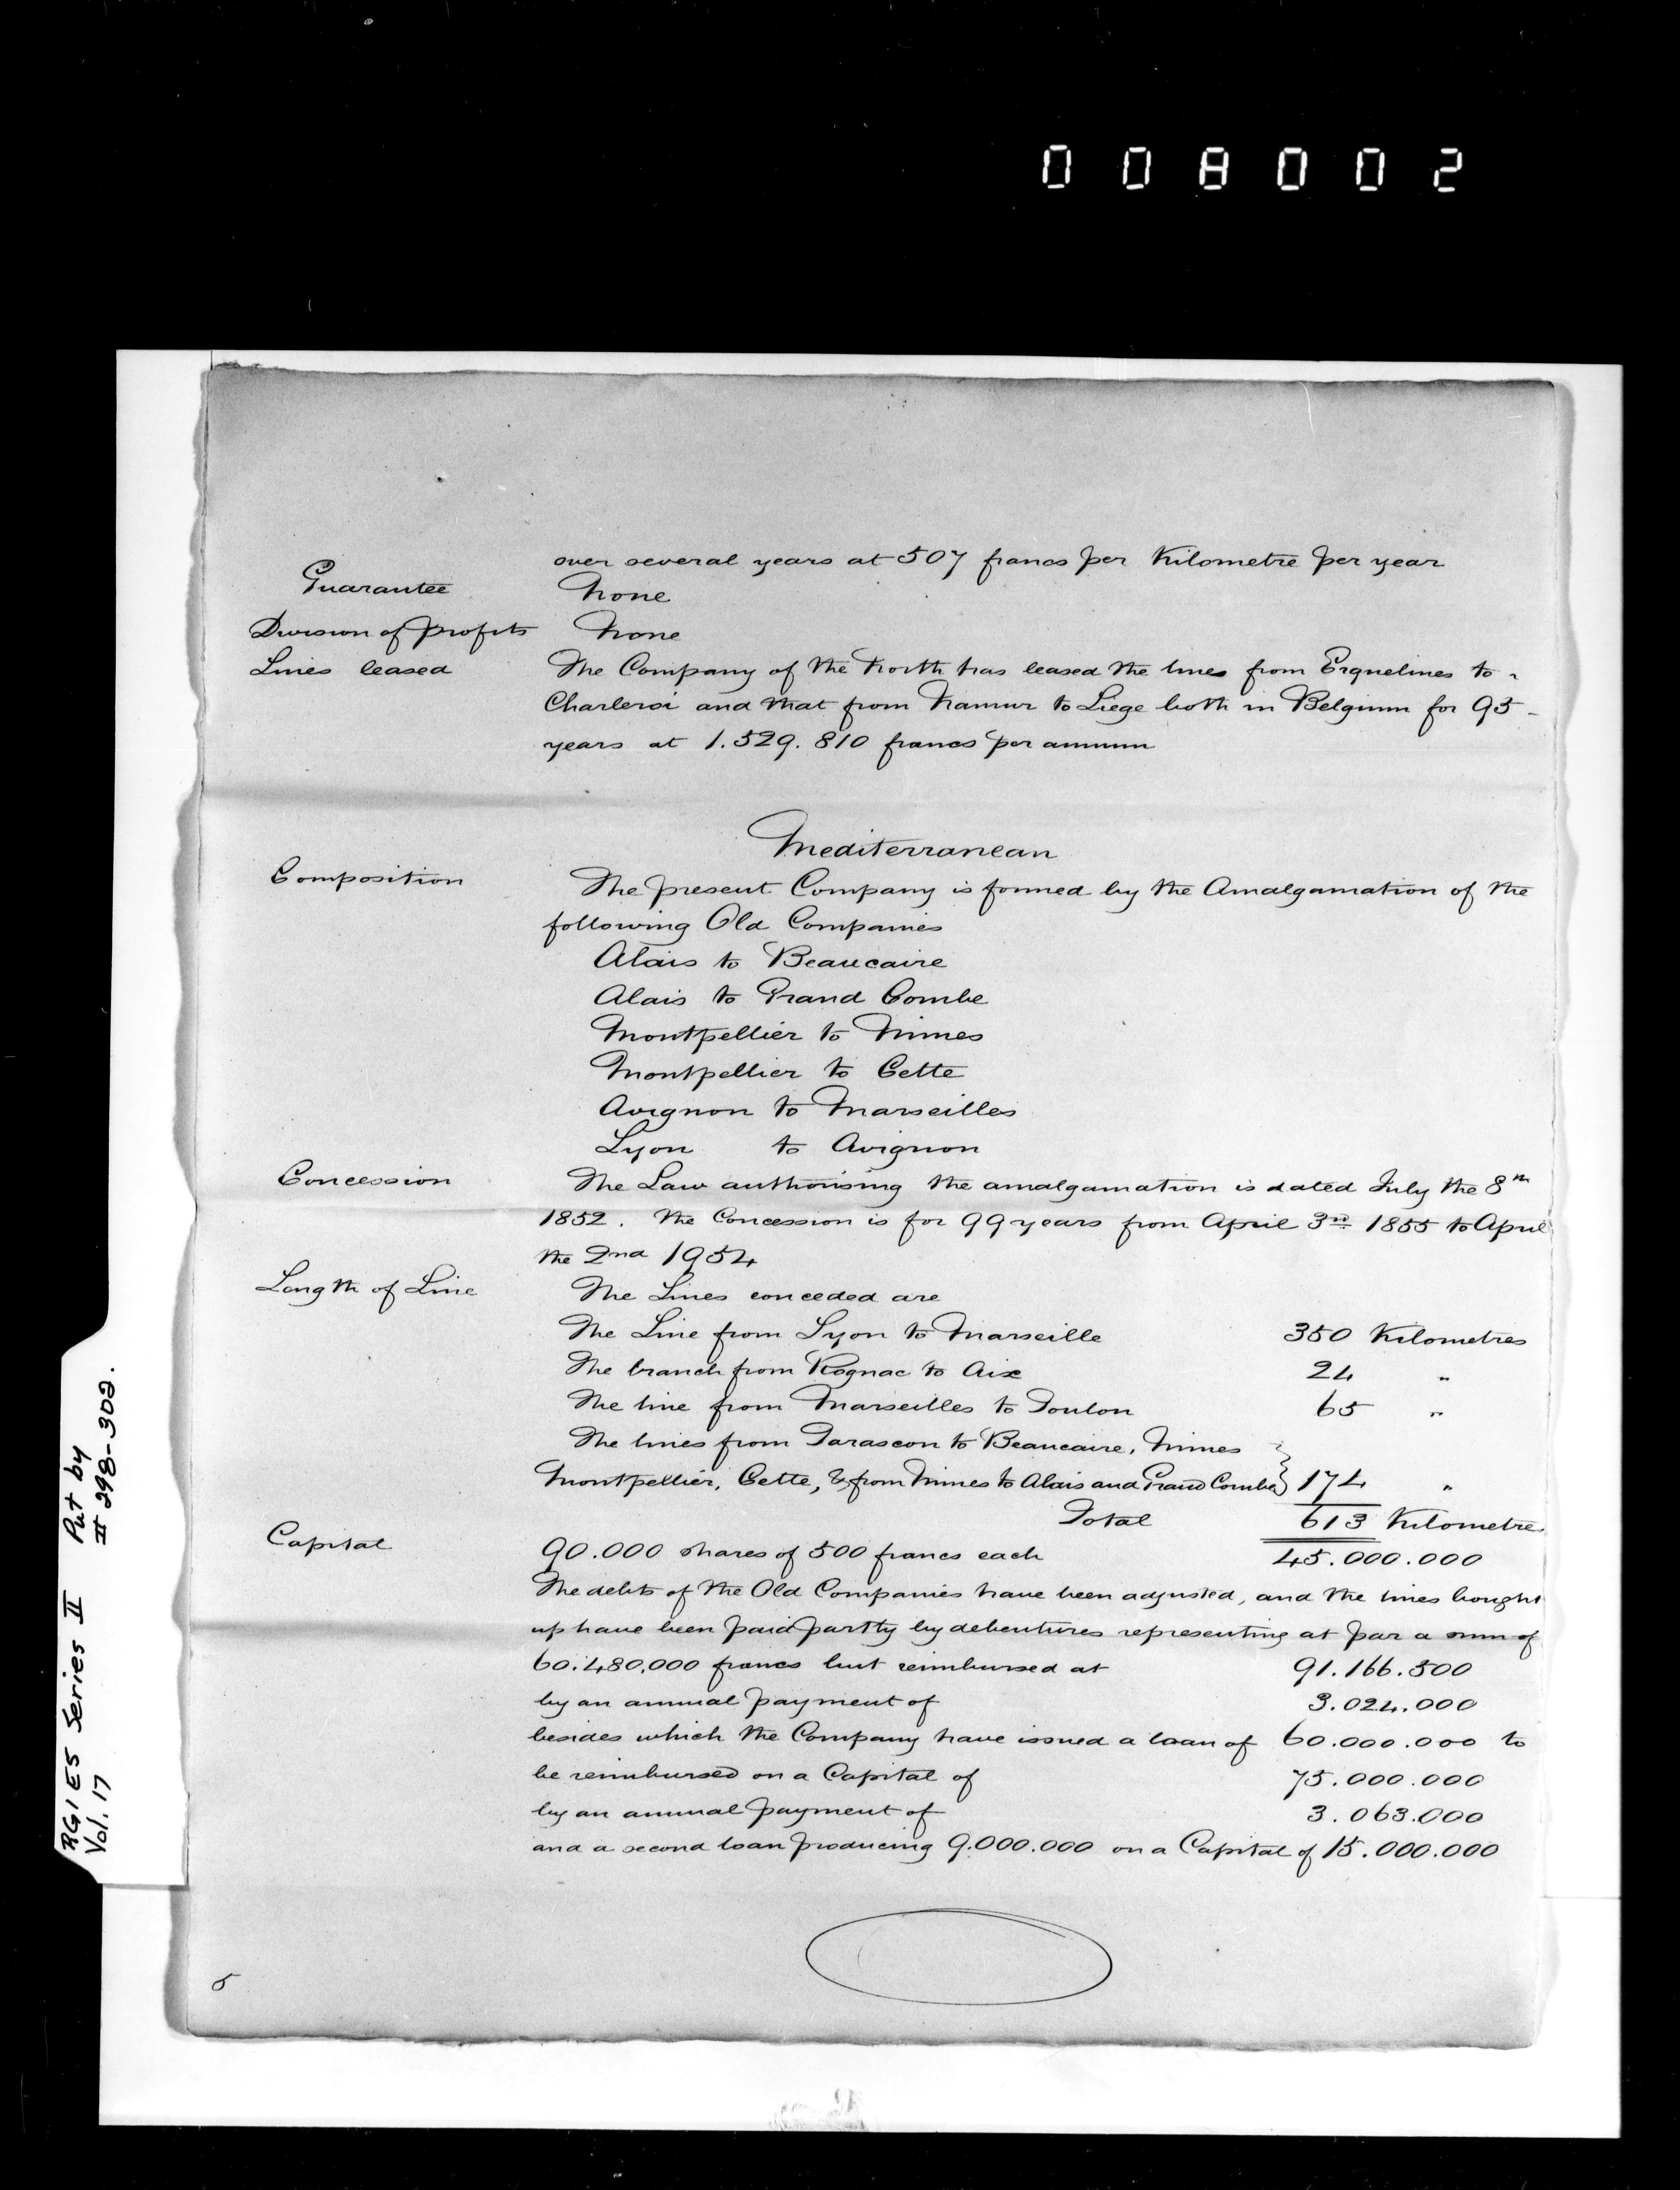 008002
over several years at 507 francs per Kilometre per year
Guarantee None
Division of profits None
Lines leased The Company of the North has leased the lines from Erquelines to
Charleroi and that from Namur to Liege both in Belgium for 93
years at 1.529.810 francs per annum
Mediterranean
Composition The present Company is formed by the Amalgamation of the
following Old Companies
Alais to Beaucaire
Alais to Grand Combe
Montpellier to Nimes
Montpellier to Cette
Avignon to Marseilles
Lyon to Avignon
Concession The Law authorising the amalgamation is dated July the 8th
1852. The Concession is for 99 years from April 3rd 1855 to April
the 2nd 1954
Length of Line The Lines conceded are
The Line from Lyon to Marseille 350 Kilometres
The branch from Rognac to Aix 24 "
The line from Marseilles to Toulon 65 "
The lines from Tarascon to Beaucaire, Nimes
Montpellier, Cette, & from Nimes to Alais and Grand Combe } 174 "
Total 613 Kilometres
Capital 90.000 shares of 500 francs each 45.000.000
The debts of the Old Companies have been adjusted, and the lines bought
up have been paid partly by debentures representing at par a sum of
60.480,000 francs but reimbursed at 91.166.500
by an annual payment of 3.024.000
besides which the Company have issued a loan of 60.000.000 to
be reimbursed on a Capital of 75.000.000
by an annual payment of 3.063.000
and a second loan producing 9.000.000 on a Capital of 15.000.000
5
RG1 E5 Series II Put by
Vol. 17 # 298-302.